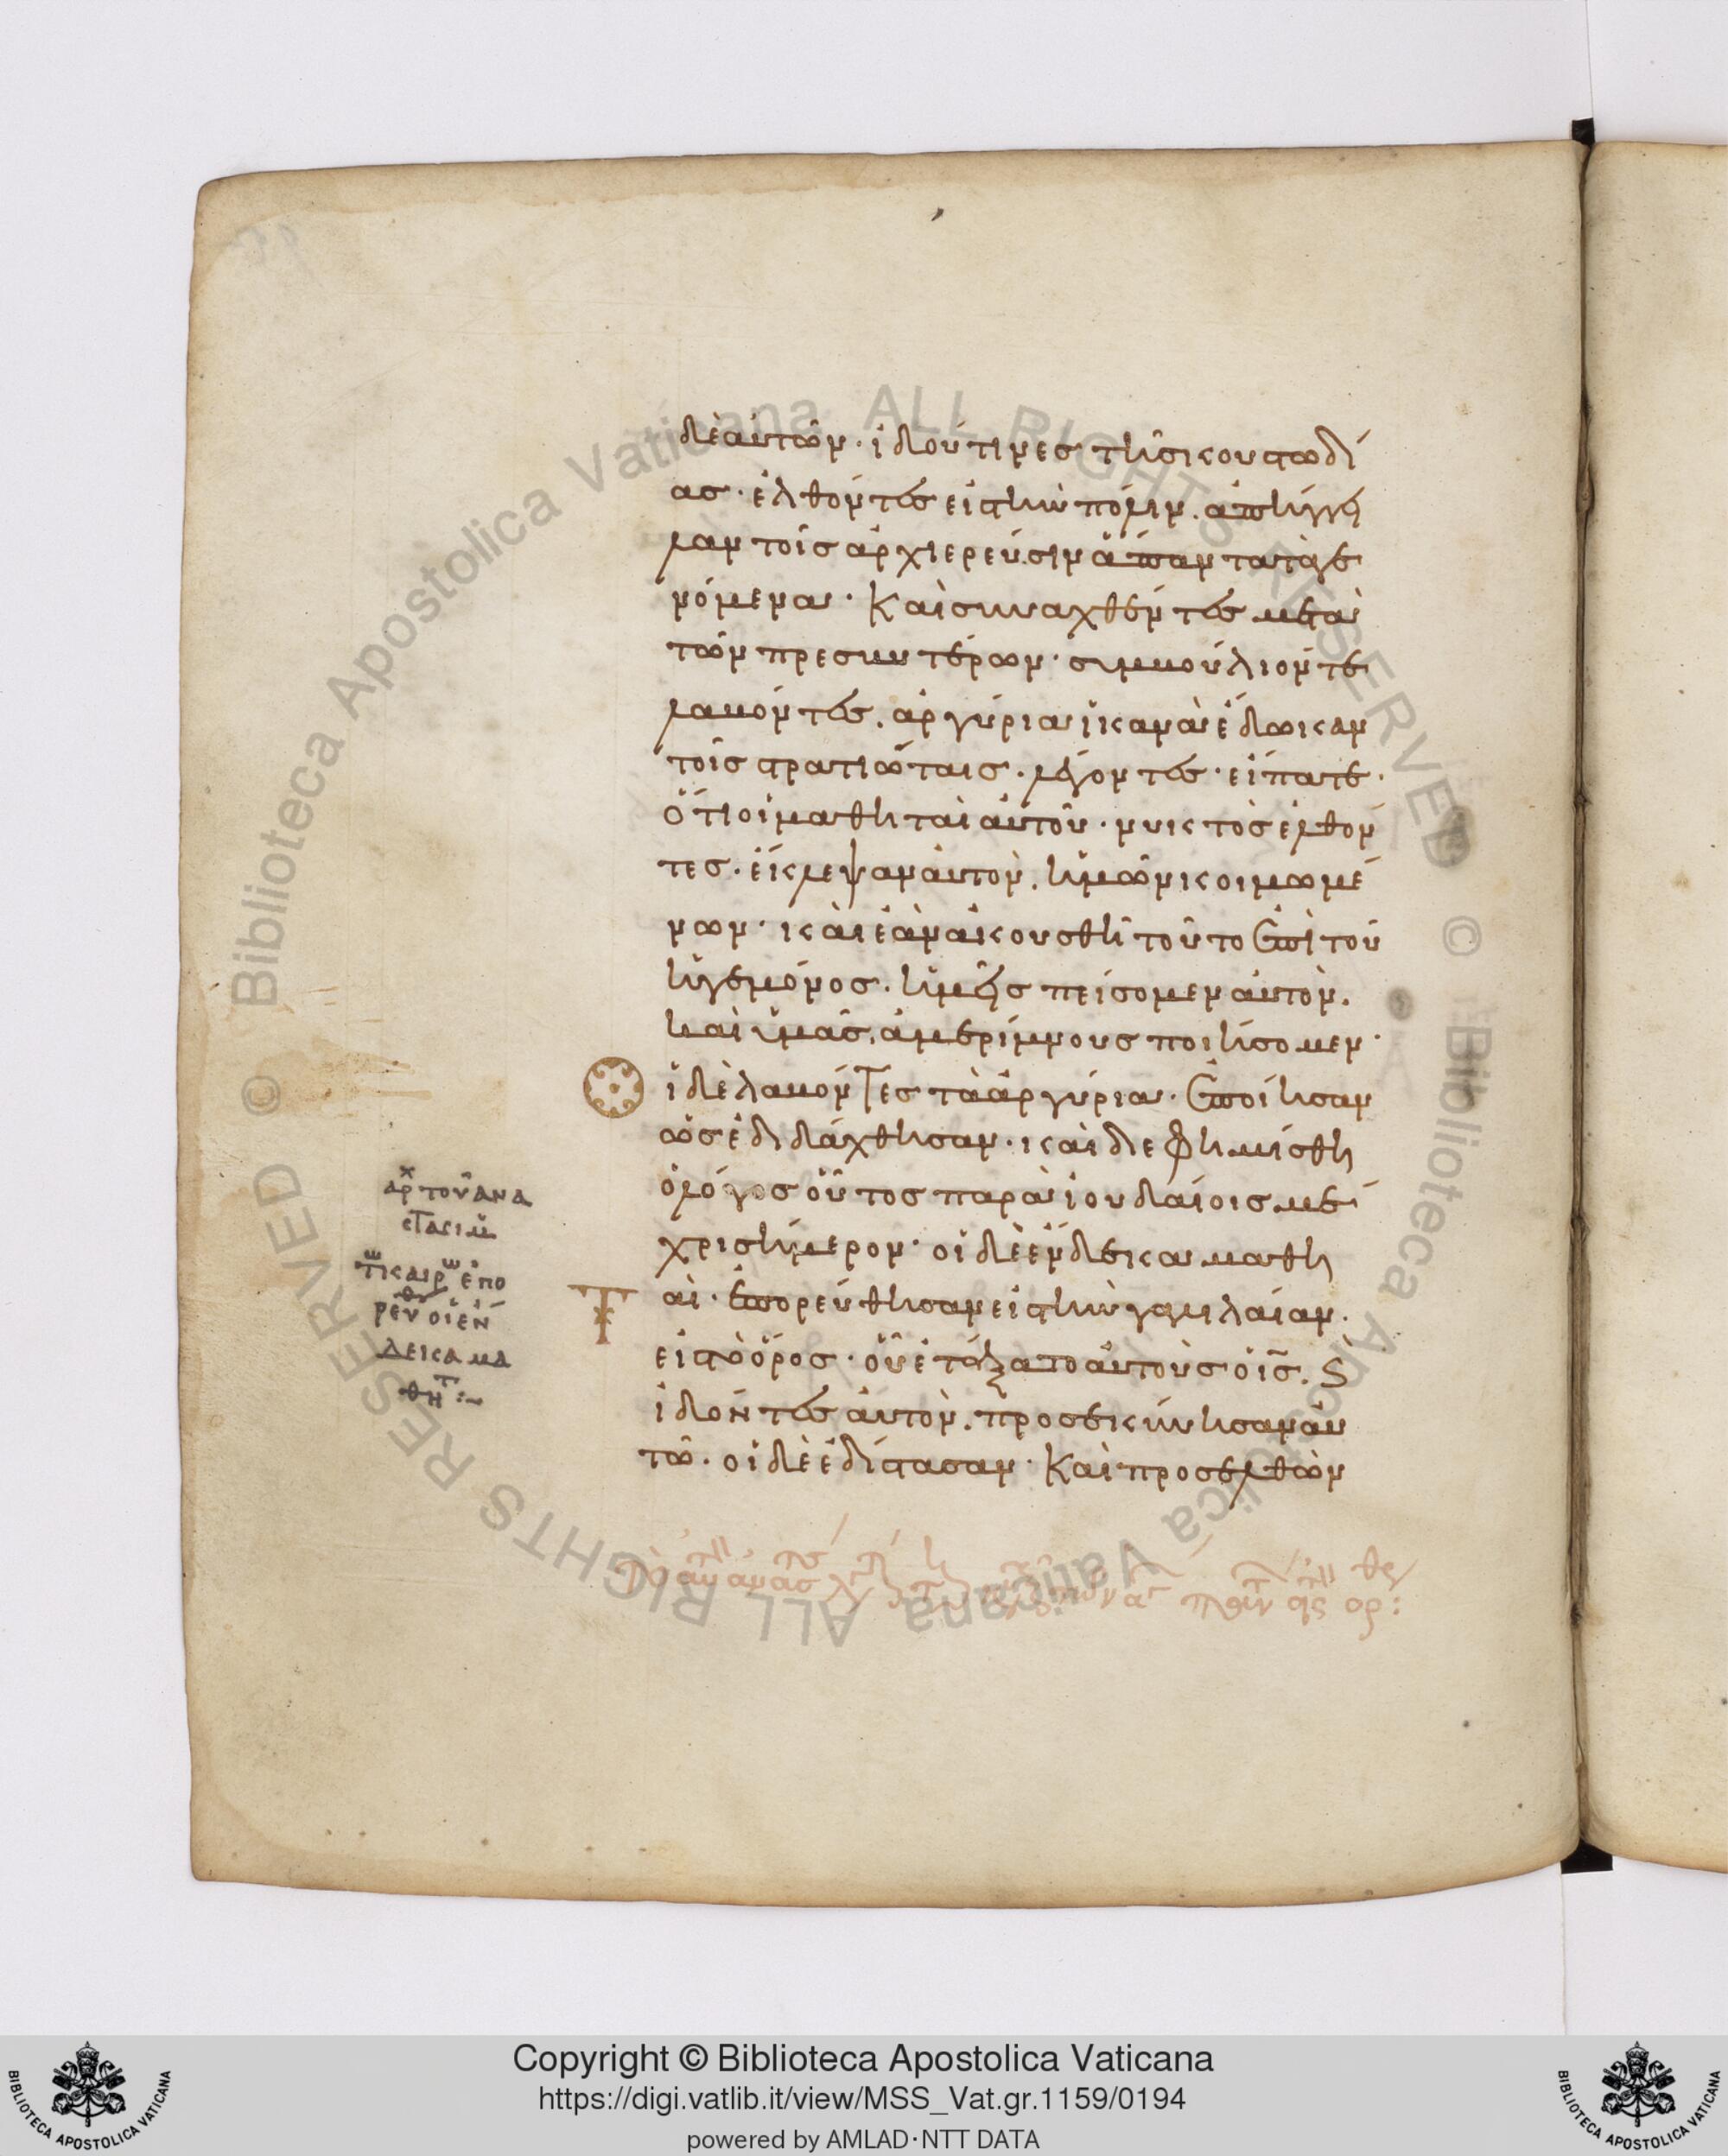 δὲ αὐτῶν· ἰδού τινες τῆς κουστωδί
ας· ἐλθόντες εἰς τὴν πόλιν. ἀπήγγει
λαν τοῖς ἀρχιερεῦσιν ἅπαντα τὰ γε
νόμενα· Καὶ συναχθέντες μετὰ
τῶν πρεσβυτέρων· συμβούλιόν τε
λαβόντες. ἀργύρια ἱκανὰ ἔδωκαν
τοῖς στρατιώταις. λέγοντες· εἴπατε·
ὅτι οἱ μαθηταὶ αὐτοῦ· νυκτὸς ἐλθόν
τες· ἔκλεψαν αὐτὸν. ἡμῶν κοιμωμέ
νων· καὶ ἐὰν ἀκουσθῆ τοῦτο ἐπὶ τοῦ
ἡγεμόνος. ἡμεῖς πείσομεν αὐτὸν.
καὶ ὑμᾶς. ἀμερίμνους ποιήσομεν·
ἱ δὲ λαβόντες τὰ ἀργύρια· ἐποίησαν
ὡς ἐδιδάχθησαν· καὶ διεφημίσθη
ὁ λόγος οὗτος παρὰ ἰουδαίοις μέ
χρι σήμερον· οἱ δὲ ἕνδεκα μαθη
αὶ· ἐπορεύθησαν εἰς τὴν γαλιλαίαν.
εἰς τὸ ὄρος· οὗ ἐτάξατο αὐτοὺς ὁ ἰς. ϛ
ἰδόντες αὐτὸν. προσεκύνησαν αὐ
τῶ. οἱ δὲ ἐδίστασαν· Καὶ προσελθὼν
ἀρχ τοῦ ἀνα
στασίμ
τω καιρω ἐπο
ρεύθ οἱ ἕν
δεκα μα
θητ :~
Copyright © Biblioteca Apostolica Vaticana
https://digi.vatlib.it/view/MSS_Vat.gr.1159/0194
powered by AMLAD·NTT DATA
BIBLIOTECA APOSTOLICA VATICANA
BIBLIOTECA APOSTOLICA VATICANA
© Biblioteca Apostolica Vaticana ALL RIGHTS RESERVED
© Biblioteca Apostolica Vaticana ALL RIGHTS RESERVED